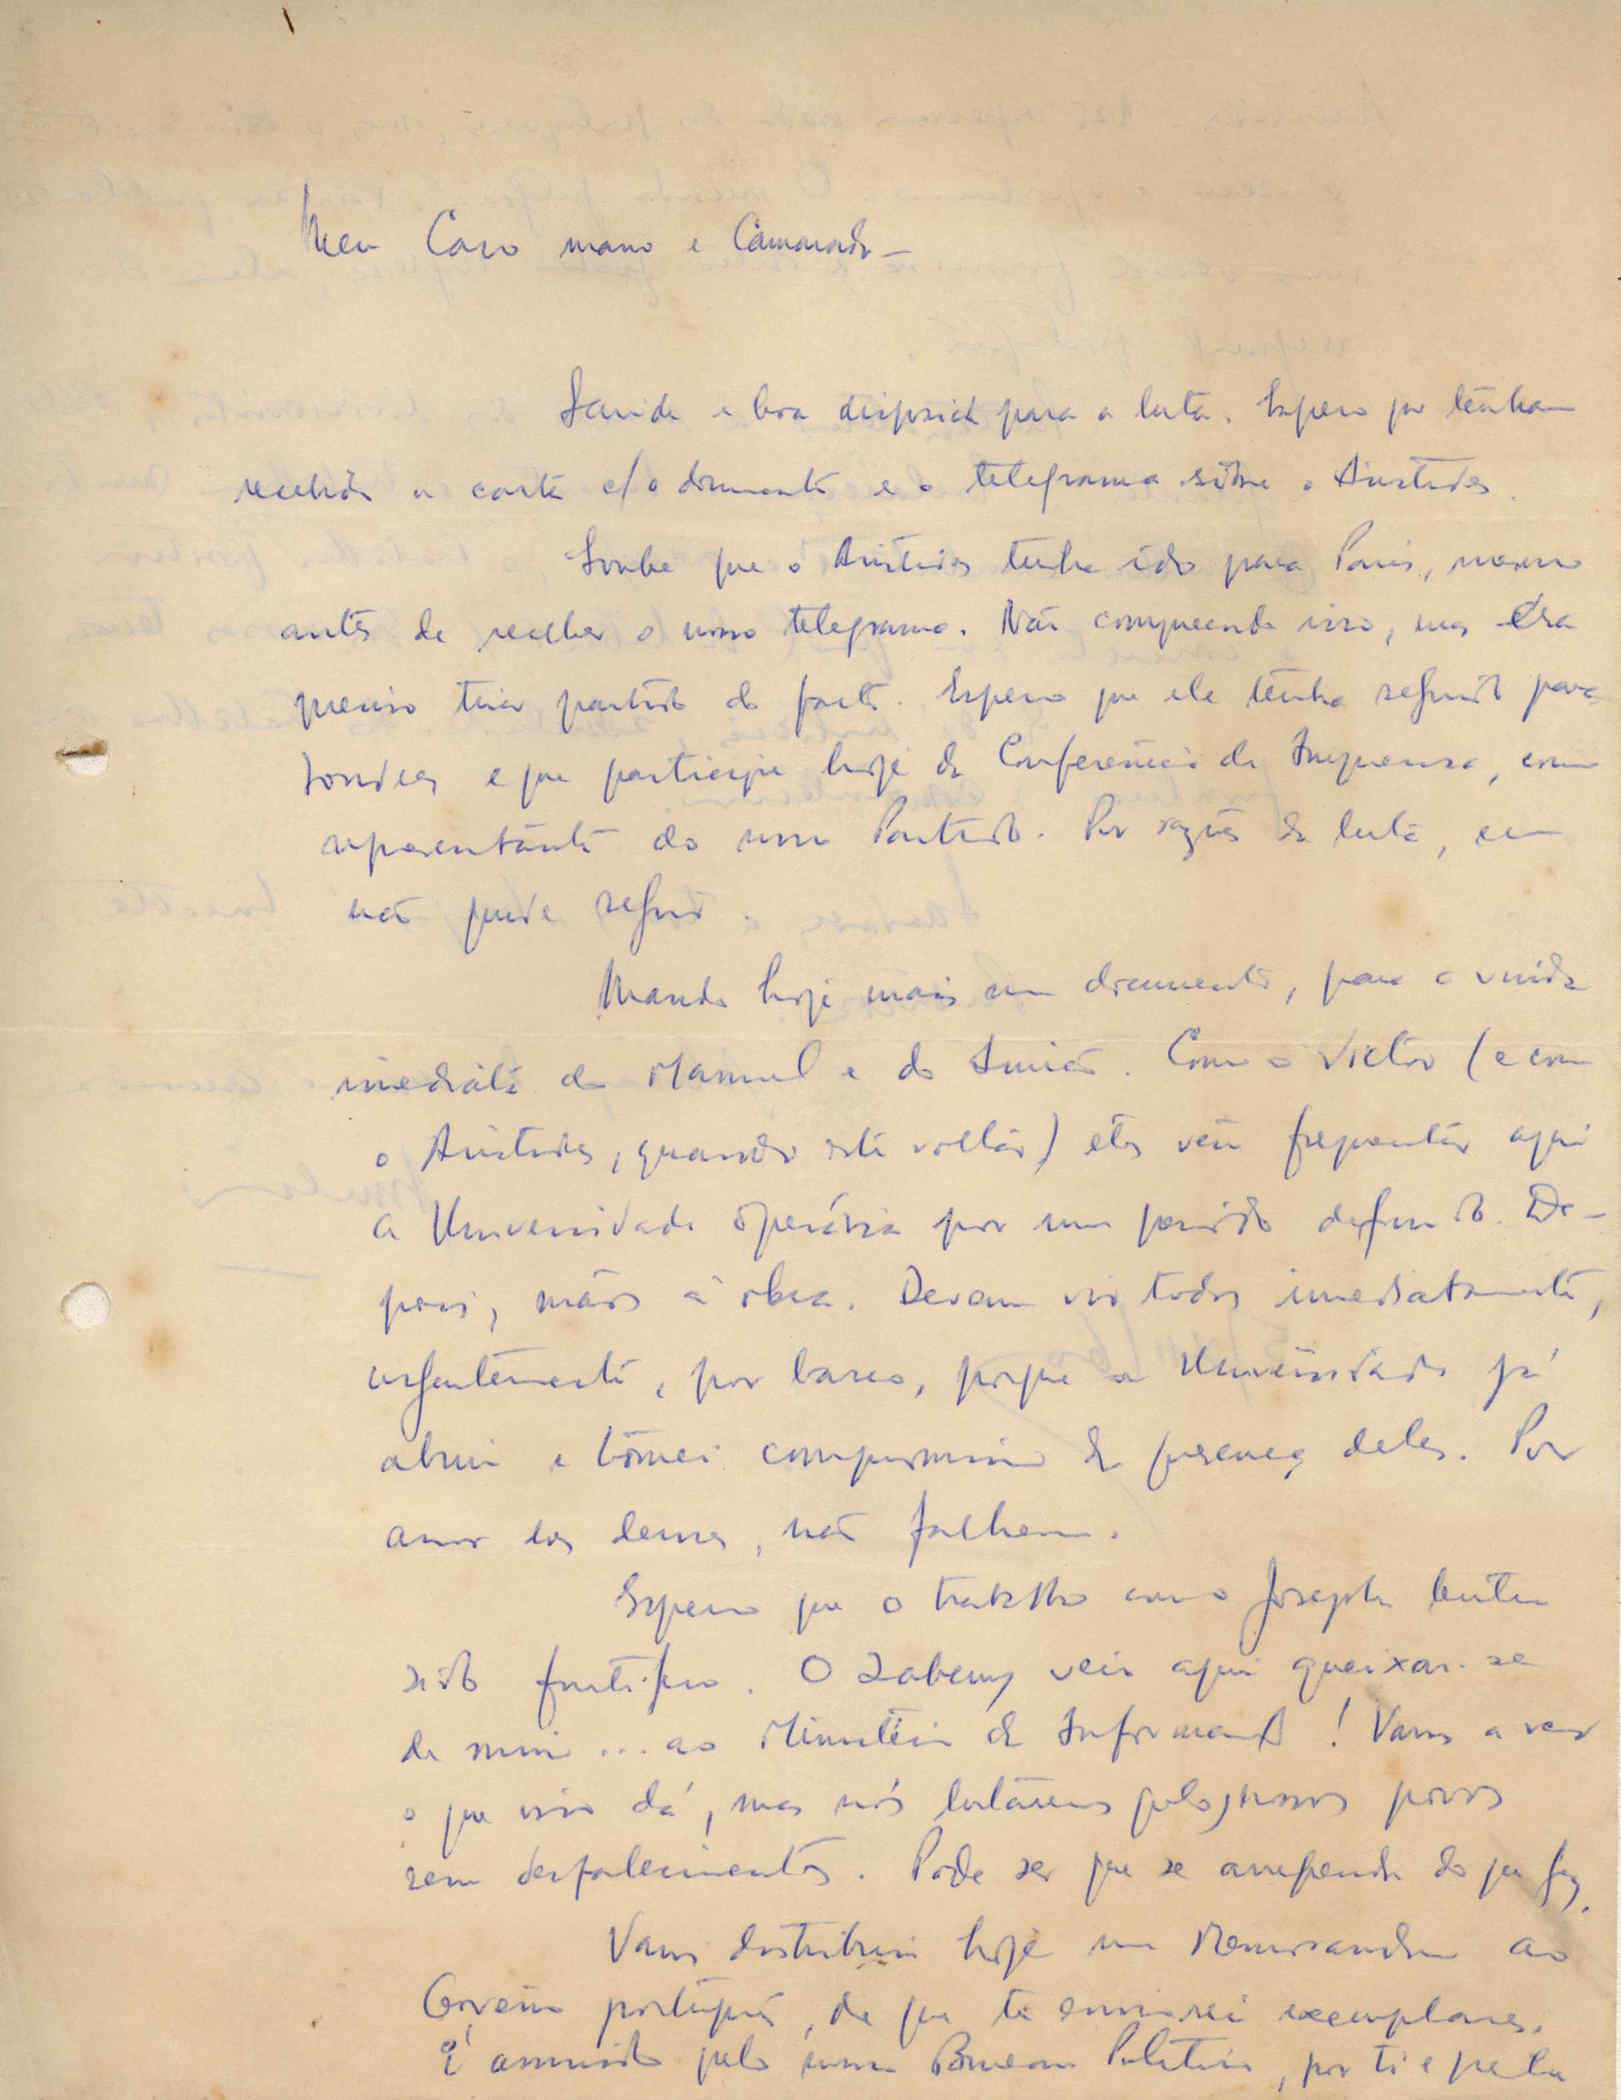 Meu Caro mano e Camarada —
Saúde e boa disposição para a luta. Espero que tenham
recebido a carta c/ o documento e o telegrama sôbre o Aristides.
Soube que o Aristides tinha ido para Paris, mesmo
antes de receber o nosso telegrama. Não compreendo isso, mas era
preciso tirar partido do facto. Espero que ele tenha seguido para
Londres e que participe hoje da Conferência de Imprensa, como
representante do nosso Partido. Por razões da luta, eu
não pude seguir.
Mando hoje mais um documento, para a vinda
imediata do Manuel e do Inácio. Como o Victor (e com
o Aristides, quando este voltar) eles vêm frequentar aqui
a Universidade Operária por um período definido. De-
pois, mãos à obra. Devem vir todos imediatamente,
urgentemente, por barco, porque a Universidade já
abriu e tomei compromisso da presença deles. Por
amor dos deuses, não falhem.
Espero que o trabalho com o Joseph tenha
sido frutífero. O Labery veio aqui queixar-se
de mim ... ao Ministério da Informação! Vamos a ver
o que isso dá, mas nós lutaremos pelos nossos povos
sem desfalecimentos. Pode ser que se arrependa do que fez.
Vamos distribuir hoje um Memorandum ao
Govêrno português, de que te enviarei exemplares.
É assinado pelo nosso Bureau Político, por ti e pelo